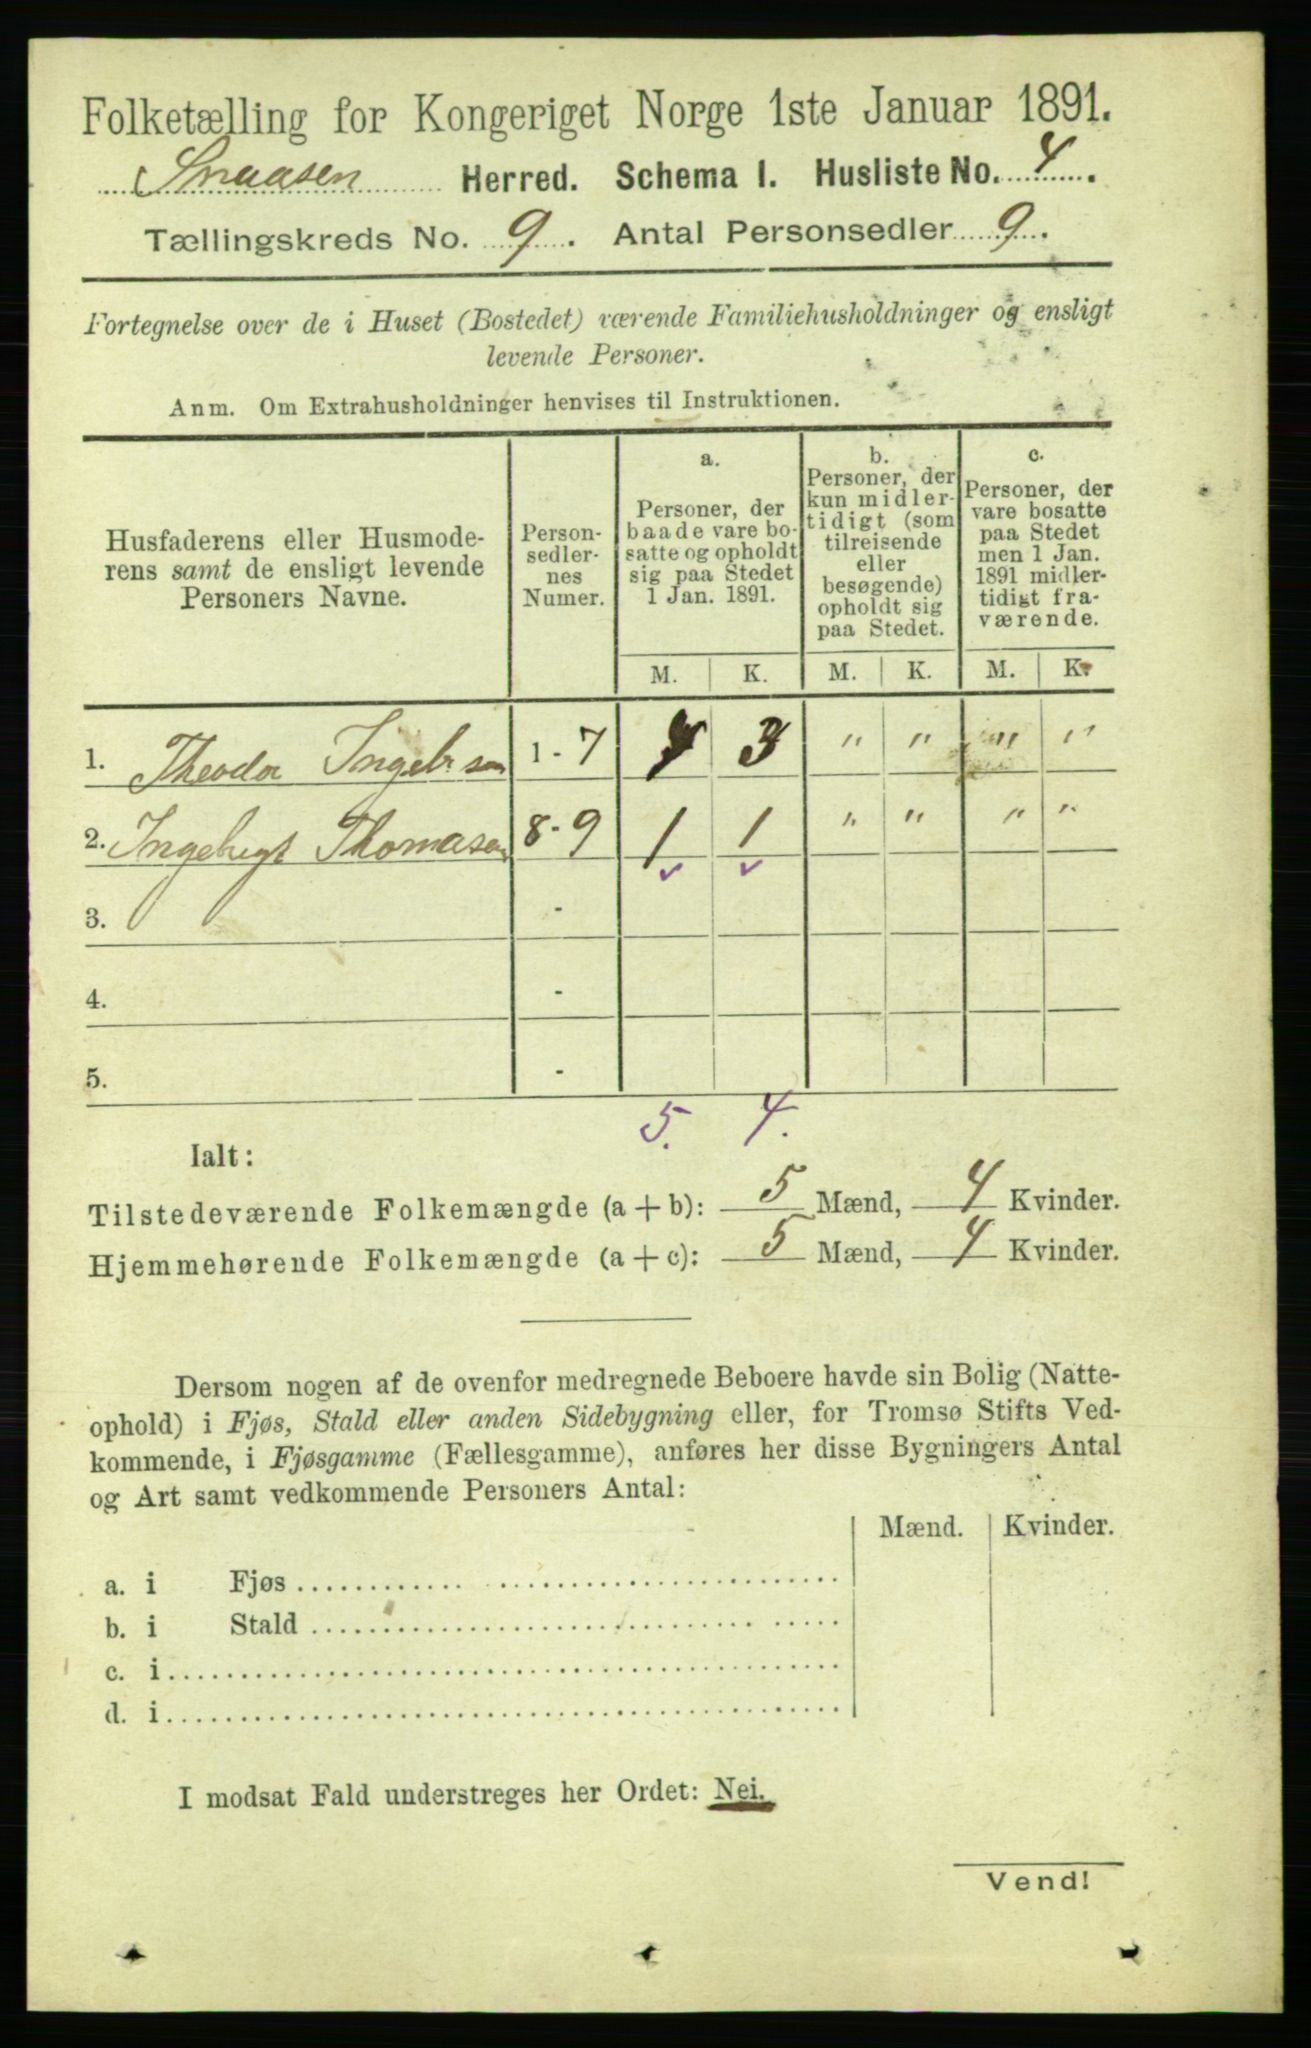 Folketælling for Kongeriget Norge 1ste Januar 1891.
Snaasen Herred. Schema I. Husliste No. 4.
Tællingskreds No. 9. Antal Personsedler 9.
Fortegnelse over de i Huset (Bostedet) værende Familiehusholdninger og ensligt
levende Personer.
Anm. Om Extrahusholdninger henvises til Instruktionen.
Husfaderens eller Husmode-
rens samt de ensligt levende
Personers Navne.
Person-
sedler-
nes
Numer.
a.
Personer, der
baade vare bo-
satte og opholdt
sig paa Stedet
1 Jan. 1891.
b.
Personer, der
kun midler-
tidigt (som
tilreisende
eller
besøgende)
opholdt sig
paa Stedet.
c.
Personer, der
vare bosatte
paa Stedet
men 1 Jan.
1891 midler-
tidigt fra-
værende.
M. K. M. K. M. K.
1. Theodor 1-7 4 3 " " " "
2. Ingebrigt Thomasen 8-9 1 1 " " " "
3. -
4. -
5. -
5. 4.
Ialt:
Tilstedeværende Folkemængde (a + b): 5 Mænd, 4 Kvinder.
Hjemmehørende Folkemængde (a + c): 5 Mænd, 4 Kvinder.
Dersom nogen af de ovenfor medregnede Beboere havde sin Bolig (Natte-
ophold) i Fjøs, Stald eller anden Sidebygning eller, for Tromsø Stifts Ved-
kommende, i Fjøsgamme (Fællesgamme), anføres her disse Bygningers Antal
og Art samt vedkommende Personers Antal:
Mænd. Kvinder.
a. i Fjøs
b. i Stald
c. i
d. i
I modsat Fald understreges her Ordet: Nei.
Vend!